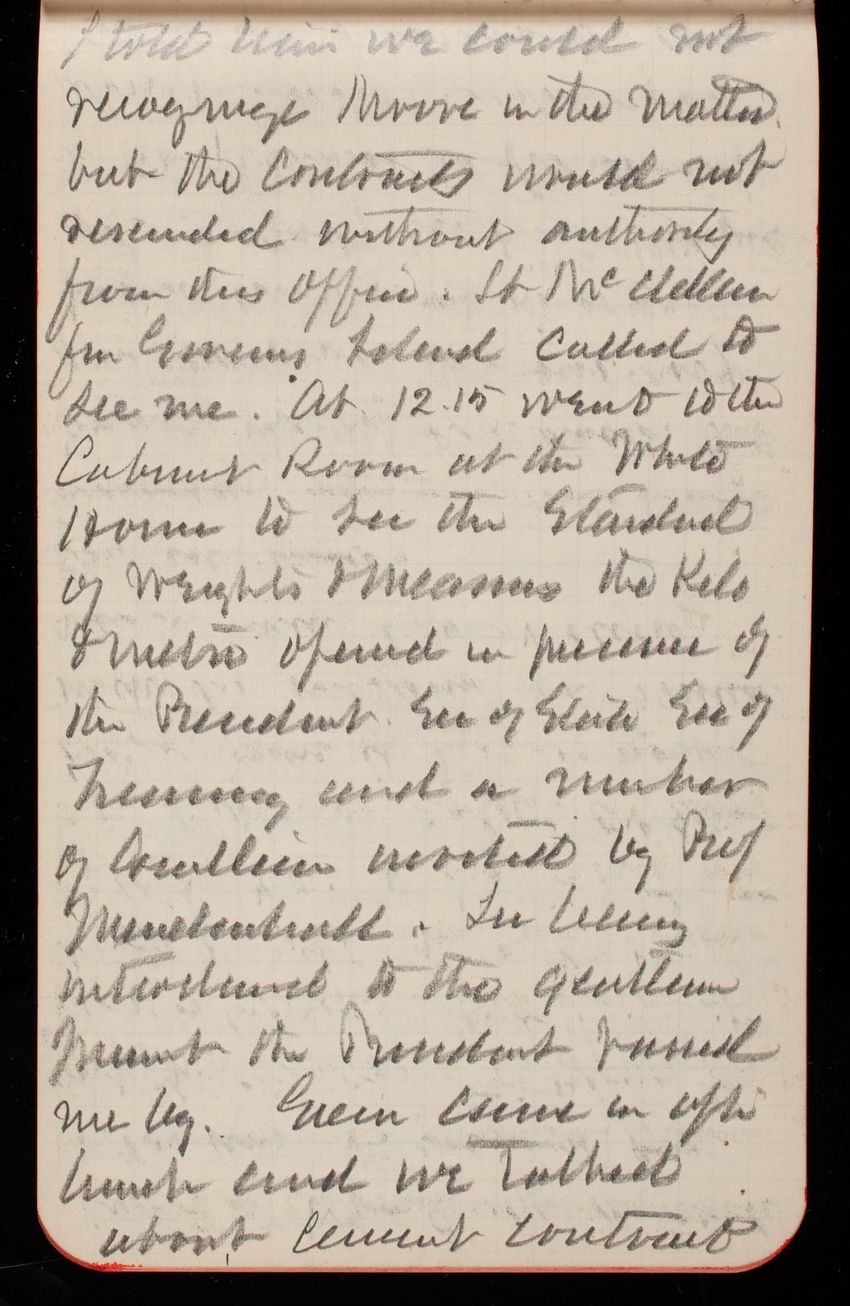 I told him we could not
recognize Moore in the matter.
but the Contracts would not
resended without authority
from this office. Lt McClellan
fm Governs Island called to
see me. At 12.15 went to the
Cabinet Room at the White
House to see the Standard
of Weights & Measures the Kilo
& metre opened in presence of
the President Sec of State Sec of
Treasury and a number
of Gentlemen invited by Prof
Mendenhall. In being
introduced to the gentlemen
present the President passed
me by. Green came in after
lunch and we talked
about Cement contract